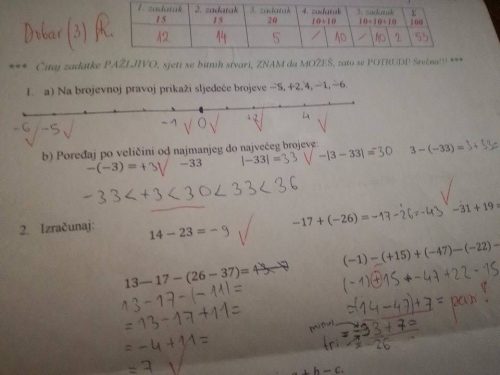 Dobar (3)
1. zadatak 2. zadatak 3. zadatak 4. zadatak 5. zadatak Σ
15 15 20 10+10 10+10+10 100
12 14 5 / 10 / 10 2 53
*** Čitaj zadatke PAŽLJIVO, sjeti se bitnih stvari, ZNAM da MOŽEŠ, zato se POTRUDI! Srećno!!! ***
1. a) Na brojevnoj pravoj prikaži sljedeće brojeve −5, +2, 4, −1, −6.
-6 -5 -1 0 +2 4
b) Poređaj po veličini od najmanjeg do najvećeg brojeve:
−(−3) = +3 −33 |−33| = 33 −|3 − 33| = -30 3 − (−33) = 3+33=
-33 < +3 < 30 < 33 < 36
2. Izračunaj:
14 − 23 = -9 −17 + (−26) = -17-26=-43 −31 + 19 =
13 − 17 − (26 − 37) = (−1) − (+15) + (−47) − (−22) −
13-17-(-11)= (-1)+15+-47+22-15
=13-17+11= =(14-47)+7= pazi!
=-4+11= minus =-33+7=
=7 tri =-26
+ b − c.